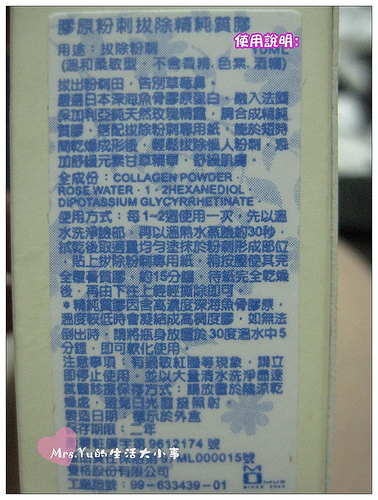 膠原粉刺拔除精純質膠
使用說明:
用途：拔除粉刺 10ML
(溫和柔敏型，不含香精、色素、酒精)
拔出粉刺田，告別草莓鼻。
嚴選日本深海魚骨膠原蛋白，融入法國
保加利亞純天然玫瑰精露，調合成精純
質膠，搭配拔除粉刺專用紙，能於短時
間乾燥成形後，輕鬆拔除惱人粉刺，添
加舒緩元素甘草精華，舒緩肌膚。
全成份：COLLAGEN POWDER、
ROSE WATER、1、2HEXANEDIOL
DIPOTASSIUM GLYCYRRHETINATE.
使用方式：每1~2週使用一次，先以溫
水洗淨臉部，再以溫熱水蒸臉約30秒，
拭乾後取適量均勻塗抹於粉刺形成部位
，貼上拔除粉刺專用紙，稍按壓使其完
全覆著質膠，約15分鐘，待紙完全乾燥
後，再由下往上輕輕撕除即可。
*精純質膠因含高濃度深海魚骨膠原，
溫度較低時會凝結成高稠度膠，如無法
倒出時，請將瓶身放置於30度溫水中5
分鐘，即可軟化使用。
注意事項：有過敏紅腫等現象，請立
即停止使用，並以大量清水洗淨盡速
就醫診療保存方式：請放置於陰涼乾
燥處，避免日光直接照射。
製造日期：標示於外盒
保存期限：二年
9612174 號
ML000015號
股份有限公司
工廠證號：99-633439-01
Mrs.Yu的生活大小事